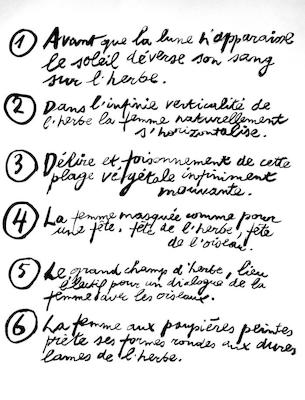 ① Avant que la lune n'apparaisse
le soleil déverse son sang
sur l'herbe.
② Dans l'infinie verticalité de
l'herbe la femme naturellement
s'horizontalise.
③ Délire et foisonnement de cette
plage végétale infiniment
mouvante.
④ La femme masquée comme pour
une fête. fête de l'herbe, fête
de l'oiseau.
⑤ Le grand champ d'herbe, lieu
électif pour un dialogue de la
femme avec les oiseaux.
⑥ La femme aux paupières peintes
prête ses formes rondes aux dures
lames de l'herbe.